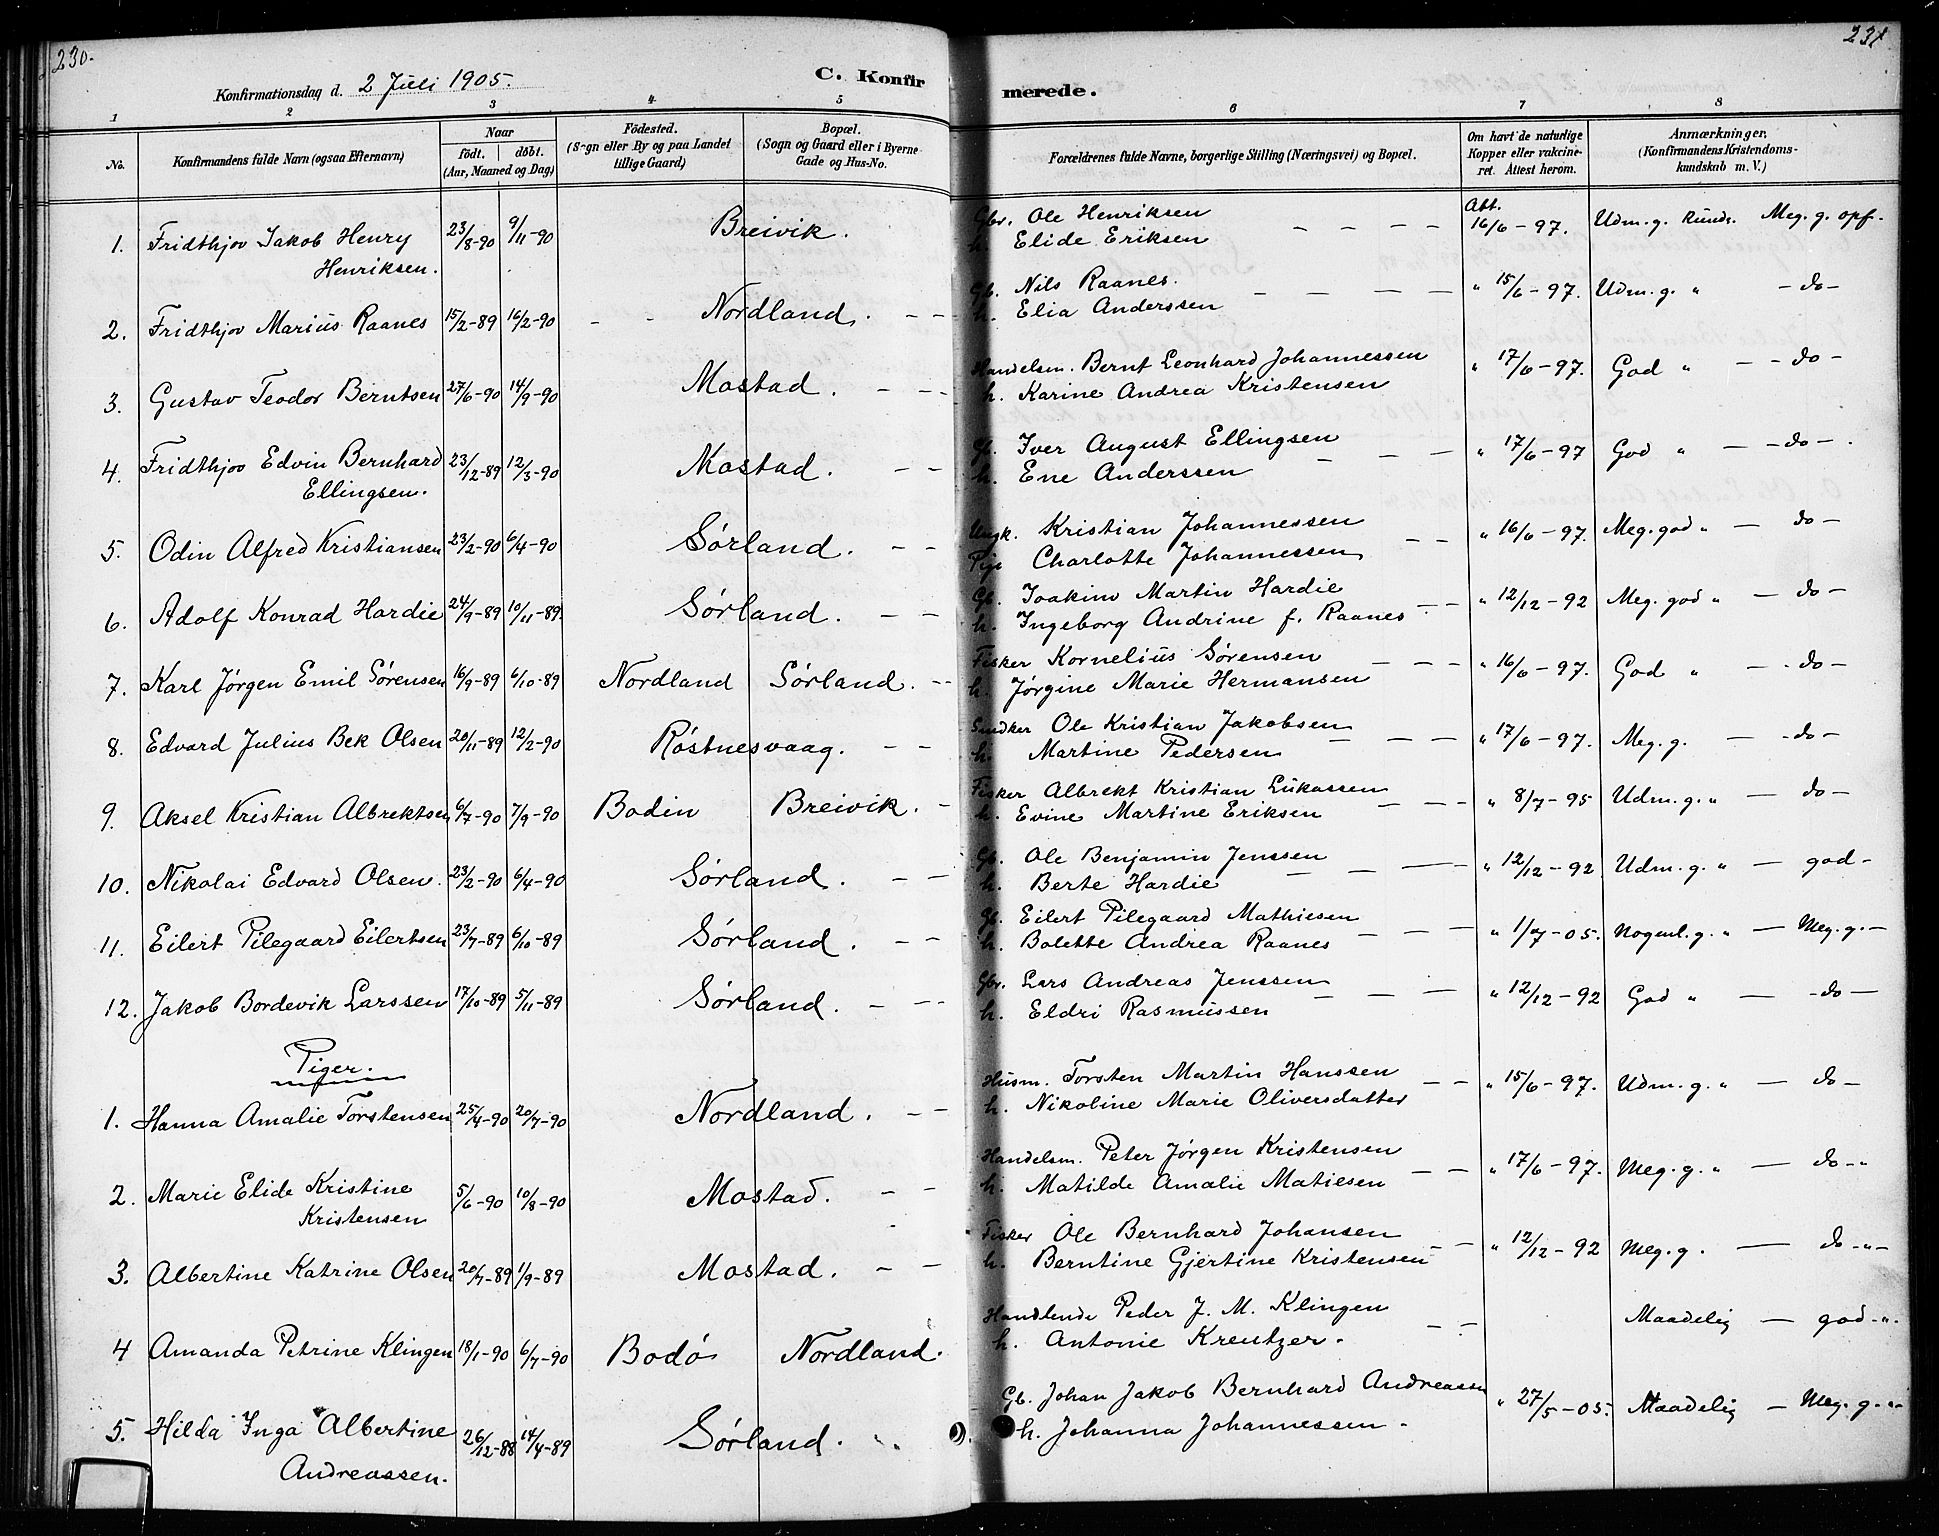 230.
231
Konfirmationsdag d. 2 Juli 1905.
C. Konfirmerede.
1 2 3 4 5 6 7 8
No.
Konfirmandens fulde Navn (ogsaa Efternavn)
Naar
födt. döbt.
(Aar, Maaned og Dag)
Födested.
(Sogn eller By og paa Landet
tillige Gaard)
Bopæl.
(Sogn og Gaard eller i Byerne
Gade og Hus-No.
Forældrenes fulde Navne, borgerlige Stilling (Næringsvei) og Bopæl.
Om havt de naturlige
Kopper eller vakcine-
ret. Attest herom.
Anmærkninger.
(Konfirmandens Kristendoms-
kundskab m. V.)
1. Fridthjov Jakob Henry 23/8-90 9/11-90 Breivik. Gbr. Ole Henriksen — — — — Att. 16/6-97. Udm. g. Kunds. Meg. g. opf.
Henriksen. h. Elide Eriksen
2. Fridthjov Marius Raanes 15/2-89 16/2-90 – – Nordland. – – Gb. Nils Raanes. — — — — " 15/6-97. Udm. g. " – do –
h. Elia Anderssen
3. Gustav Teodor Berntsen 27/6-90 14/9-90 Mostad. – – Handelsm. Bernt Leonhard Johannessen " 17/6-97. God " – – do –
h. Karine Andrea Kristensen
4. Fridthjov Edvin Bernhard 23/12-89 12/3-90 Mostad. – – Gb. Iver August Ellingsen — — — " 17/6-97 God " – – do – .
Ellingsen. h. Ene Anderssen
5. Odin Alfred Kristiansen 23/2-90 6/4-90 Sørland. – – Ungk. Kristian Johannessen – – " 16/6-97. Meg. god " – do –
Pige Charlotte Johannessen
6. Adolf Konrad Hardie 24/9-89 10/11-89. Sørland. – – Gb. Joakim Martin Hardie – – " 12/12-92 Meg. god " – do –
h. Ingeborg Andrine f. Raanes
7. Karl Jørgen Emil Sørensen 16/9-89 6/10-89 Nordland Sørland. – – Fisker Kornelius Sørensen – – – " 16/6-97. God " – – do –
h. Jørgine Marie Hermansen
8. Edvard Julius Bek Olsen 20/11-89 12/2-90 Røstnesvaag. – – Snedker Ole Kristian Jakobsen — — — " 17/6-97. Meg. g. – – do –
h. Martine Pedersen
9. Aksel Kristian Albrektsen 6/7-90 7/9-90 Bodin Breivik. – Fisker Albrekt Kristian Lukassen – – – " 8/7-95 Udm. g. " – do –
h. Evine Martine Eriksen
10. Nikolai Edvard Olsen. 23/2-90 6/4-90 Sørland. – – Gb. Ole Benjamin Jenssen – – — " 12/12-92 Udm. g. " – god –
h. Berte Hardie
11. Eilert Pilegaard Eilertsen 23/7-89 6/10-89 Sørland. – – Gb. Eilert Pilegaard Mathiesen – – – " 1/7-05. Nogenl. g. " – Meg. g. –
h. Bolette Andrea Raanes
12. Jakob Bordevik Larssen 17/10-89 5/11-89 Sørland. – – Gbr. Lars Andreas Jenssen – – – " 12/12-92 God " – – do –
h. Eldri Rasmussen
Piger.
1. Hanna Amalie Torstensen 25/4-90 20/7-90 Nordland. – – Husm. Torsten Martin Hanssen – – " 15/6-97. Udm. g. " – do –
h. Nikoline Marie Oliversdatter
2. Marie Elide Kristine 5/6-90 10/8-90 Mostad. – – Handelsm. Peter Jørgen Kristensen – – " 17/6-97. Meg. g. " – do – "
Kristensen h. Matilde Amalie Matiesen
3. Albertine Katrine Olsen 20/7-89 1/9-89 Mostad. – – Fisker Ole Bernhard Johansen – – " 12/12-92 Meg. g. — do – " –
h. Berntine Gjertine Kristensen
4 Amanda Petrine Klingen 18/1-90 6/7-90 Bodø Nordland. Handlende Peder J. M. Klingen – – Maadelig – god – " .
h. Antonie Kreutzer.
5. Hilda Inga Albertine 26/12-88 14/4-89 Sørland. Gb. Johan Jakob Bernhard Andreassen " 27/5-05. Maadelig – Meg. g. "
Andreassen. h. Johanna Johannessen.